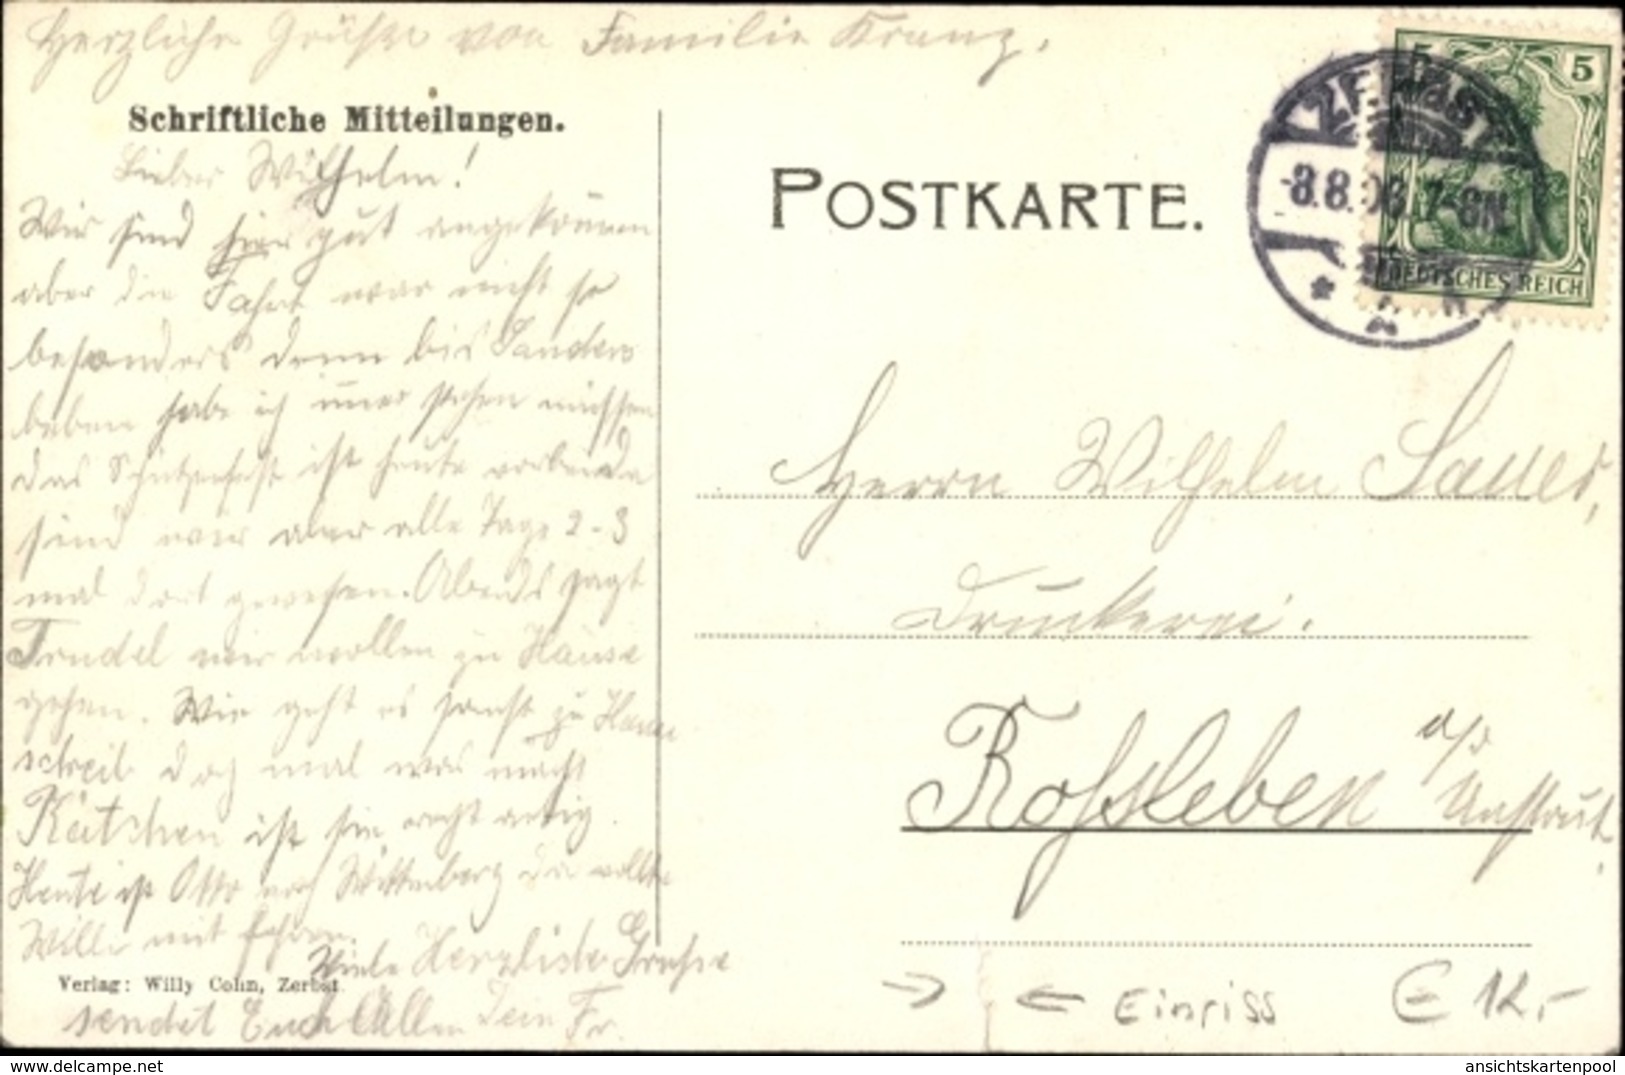 Herzliche Grüße von Familie Kranz.
Schriftliche Mitteilungen.
Lieber Wilhelm!
Wir sind hier gut angekommen
aber die Fahrt war nicht so
besonders denn bis
habe ich immer stehen müssen
das Schützenfest ist heute
sind wir aber alle Tage 2-3
mal dort gewesen. Abends sagt
Trudel wir wollen zu Hause
gehen. Wie geht es sonst zu Hause
schreib doch mal was macht
Kätchen ist sie recht artig.
Heute ist Otto nach Wittenberg da wollte
Willi mit fahren.
Viele Herzliche Grüsse
sendet Euch Allen Dein Fr.
Verlag: Willy Cohn, Zerbst
POSTKARTE.
ZERBST
8.8.06. 7-8N.
5
DEUTSCHES REICH
Herrn Wilhelm Sauer,
Druckerei.
Rossleben a/d
Unstrut.
Einriss
€ 12,-
www.delcampe.net
ansichtskartenpool